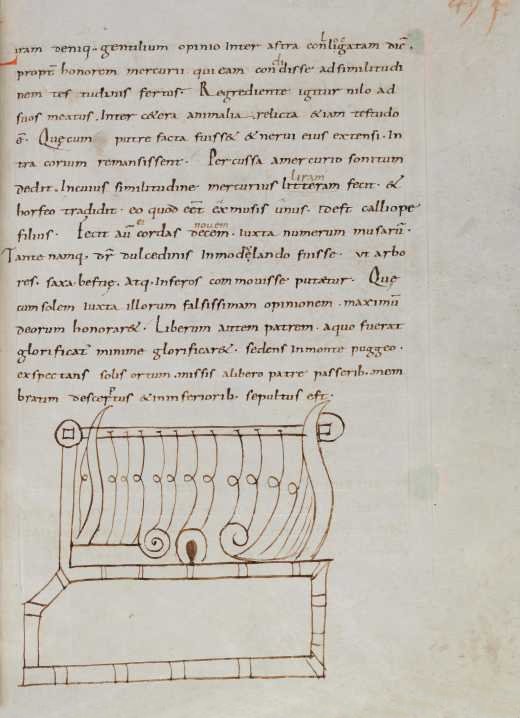 Liram deniq. gentilium opinio inter astra conligatam dic̄.
propt̄ honorem mercurii qui eam condisse ad similitudi
nem testudinis fertur. Regrediente igitur nilo ad
suos meatus. Inter cetera animalia relicta etiam testudo
ē. Quęcum putrefacta fuisset & nerui eius extensi. In
tra corium remansissent. Percussa amercurio sonitum
dedit. Incuius similitudine mercurius litteram fecit. &
liram
horfeo tradidit. eo quod eēt exmusis unus. idest calliope
filius. Fecit aū cordas decem. iuxta numerum musarū.
nouem
Tante nanq. dr̄ dulcedinis Inmodulando fuisse. ut arbo
res. saxa. bestię. atq. Inferos commouisse putaetur. Quę
cum solem iuxta illorum falsissimam opinionem. maximū
deorum honoraret. Liberum autem patrem. aquo fuerat
glorificat' minime glorificaret. sedens inmonte puggeo.
exspectans solis ortum. missis alibero patre passerib. mem
bratim desceptus & ininferiorib. sepultus est.